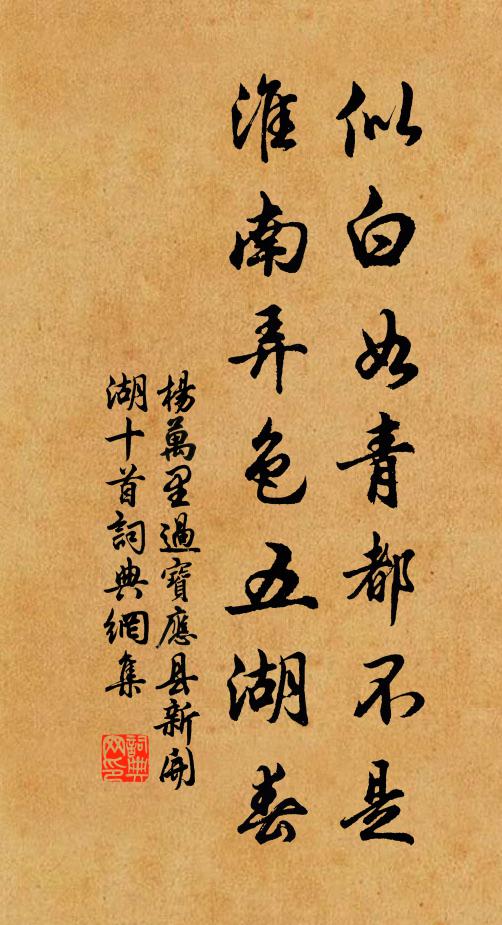 似白如青都不是
淮南弄色五湖春
楊萬里過寶應县新開
湖十首詞典網集
詞典
网印